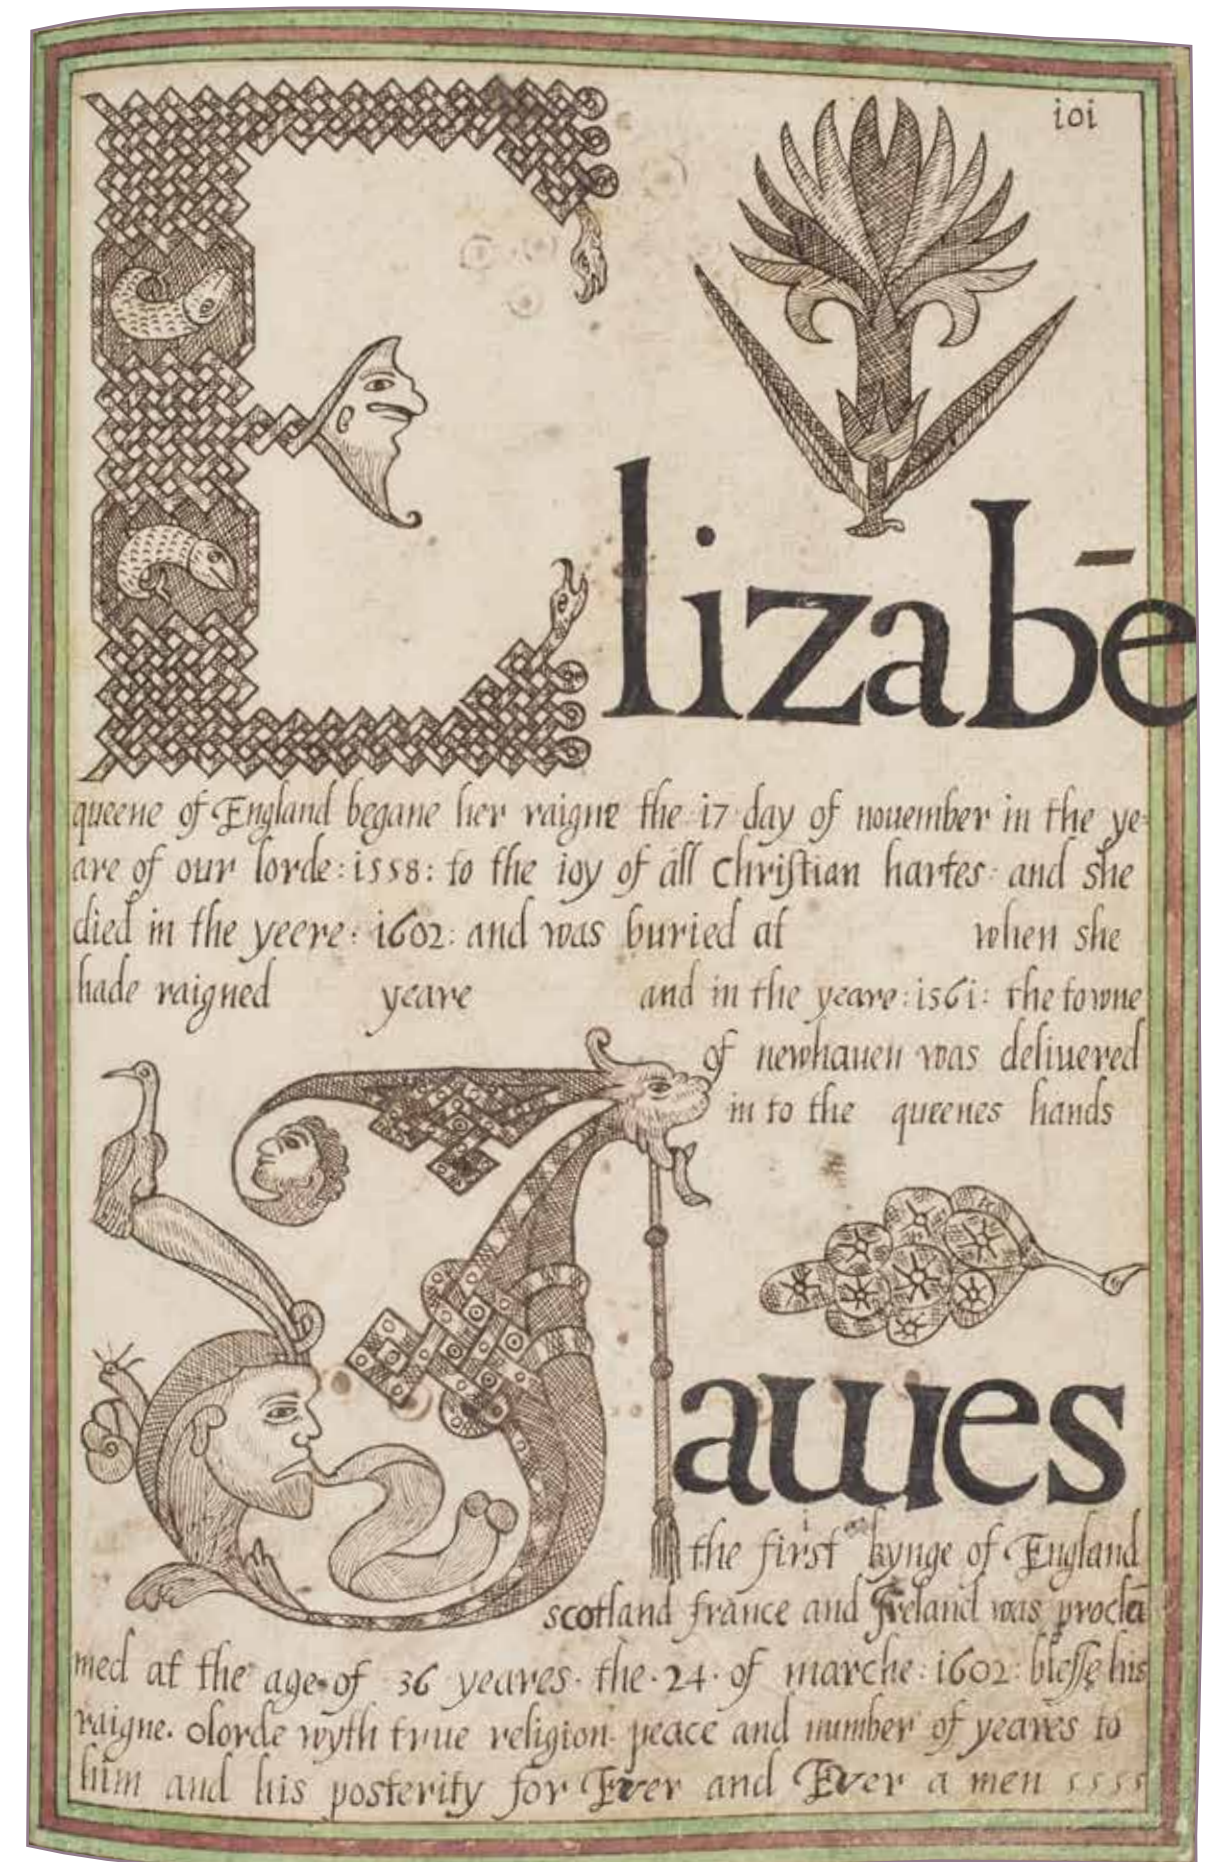 ioi
Elizabē
queene of England begane her raigne the 17 day of nouember in the ye-
are of our lorde: 1558: to the ioy of all christian hartes and she
died in the yeere: 1602: and was buried at when she
hade raigned yeare and in the yeare: 1561: the towne
of newhauen was deliuered
in to the queenes hands
Iames
the first kynge of England
scotland france and Ireland was procla
med at the age of 36 yeares. the. 24. of marche: 1602: blesse his
raigne. olorde wyth true religion peace and number of yeares to
him and his posterity for Ever and Ever a men ssss